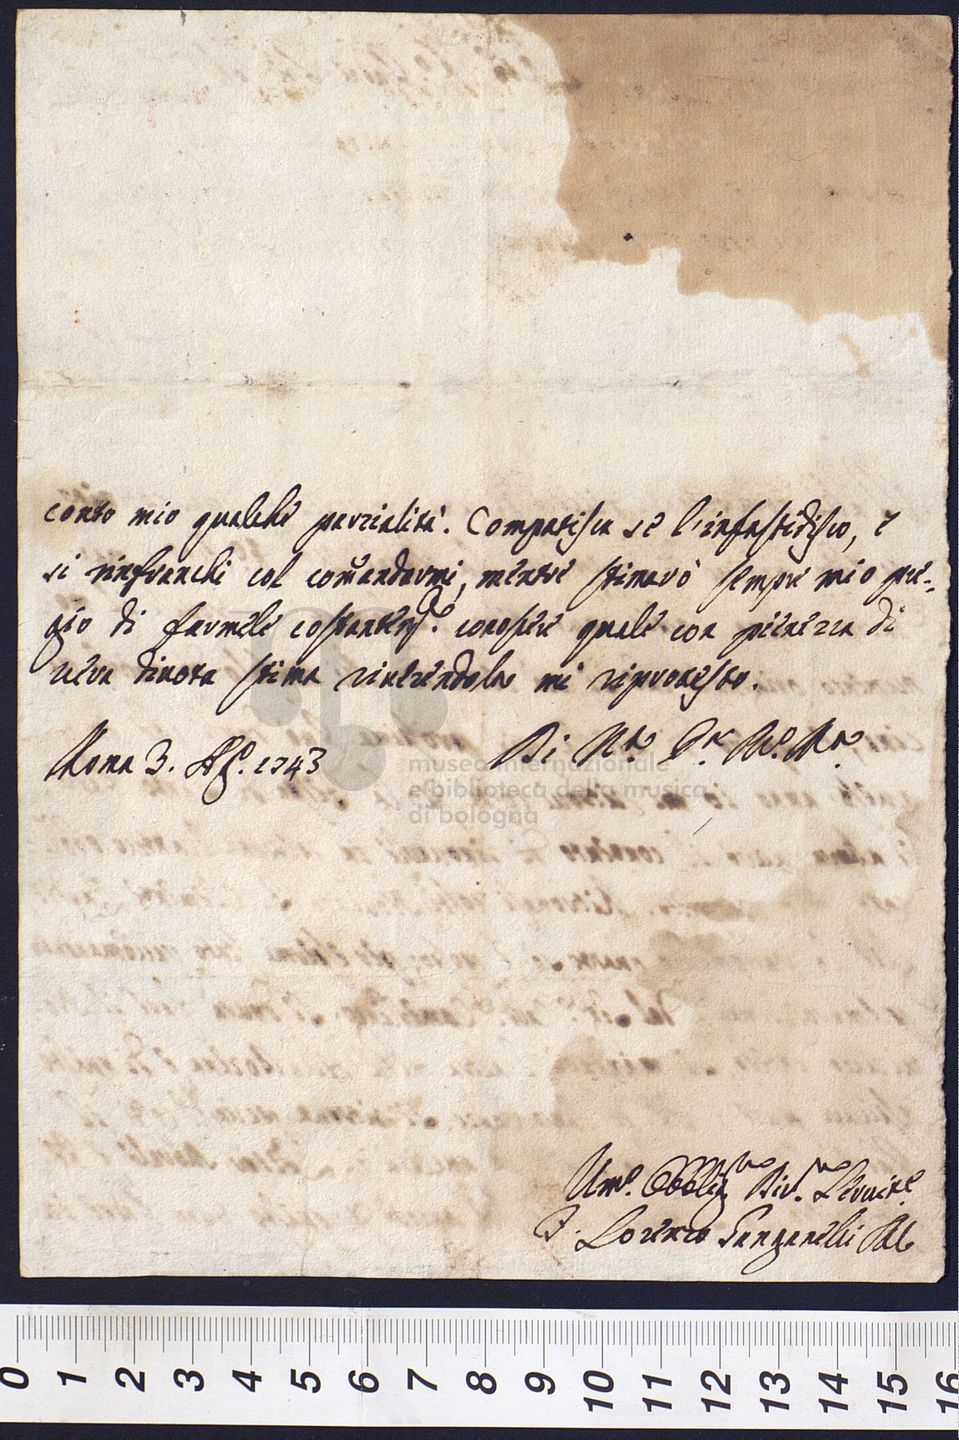 conto mio qualche parzialità. Compatisca se l'infastidisco, e
si rinfranchi col comandarmi, mentre stimarò sempre mio pre-
gio di farmele costantem.te conoscere quale con pienezza di
vera divota stima riverendola mi riprotesto.
Roma 3. Ag.o 1743
Di V.ra P.
museo internazionale
e biblioteca della musica
di bologna
Um.o Obblig.mo Div.mo Servit.e
F. Lorenzo Ganganelli
0 1 2 3 4 5 6 7 8 9 10 11 12 13 14 15 16